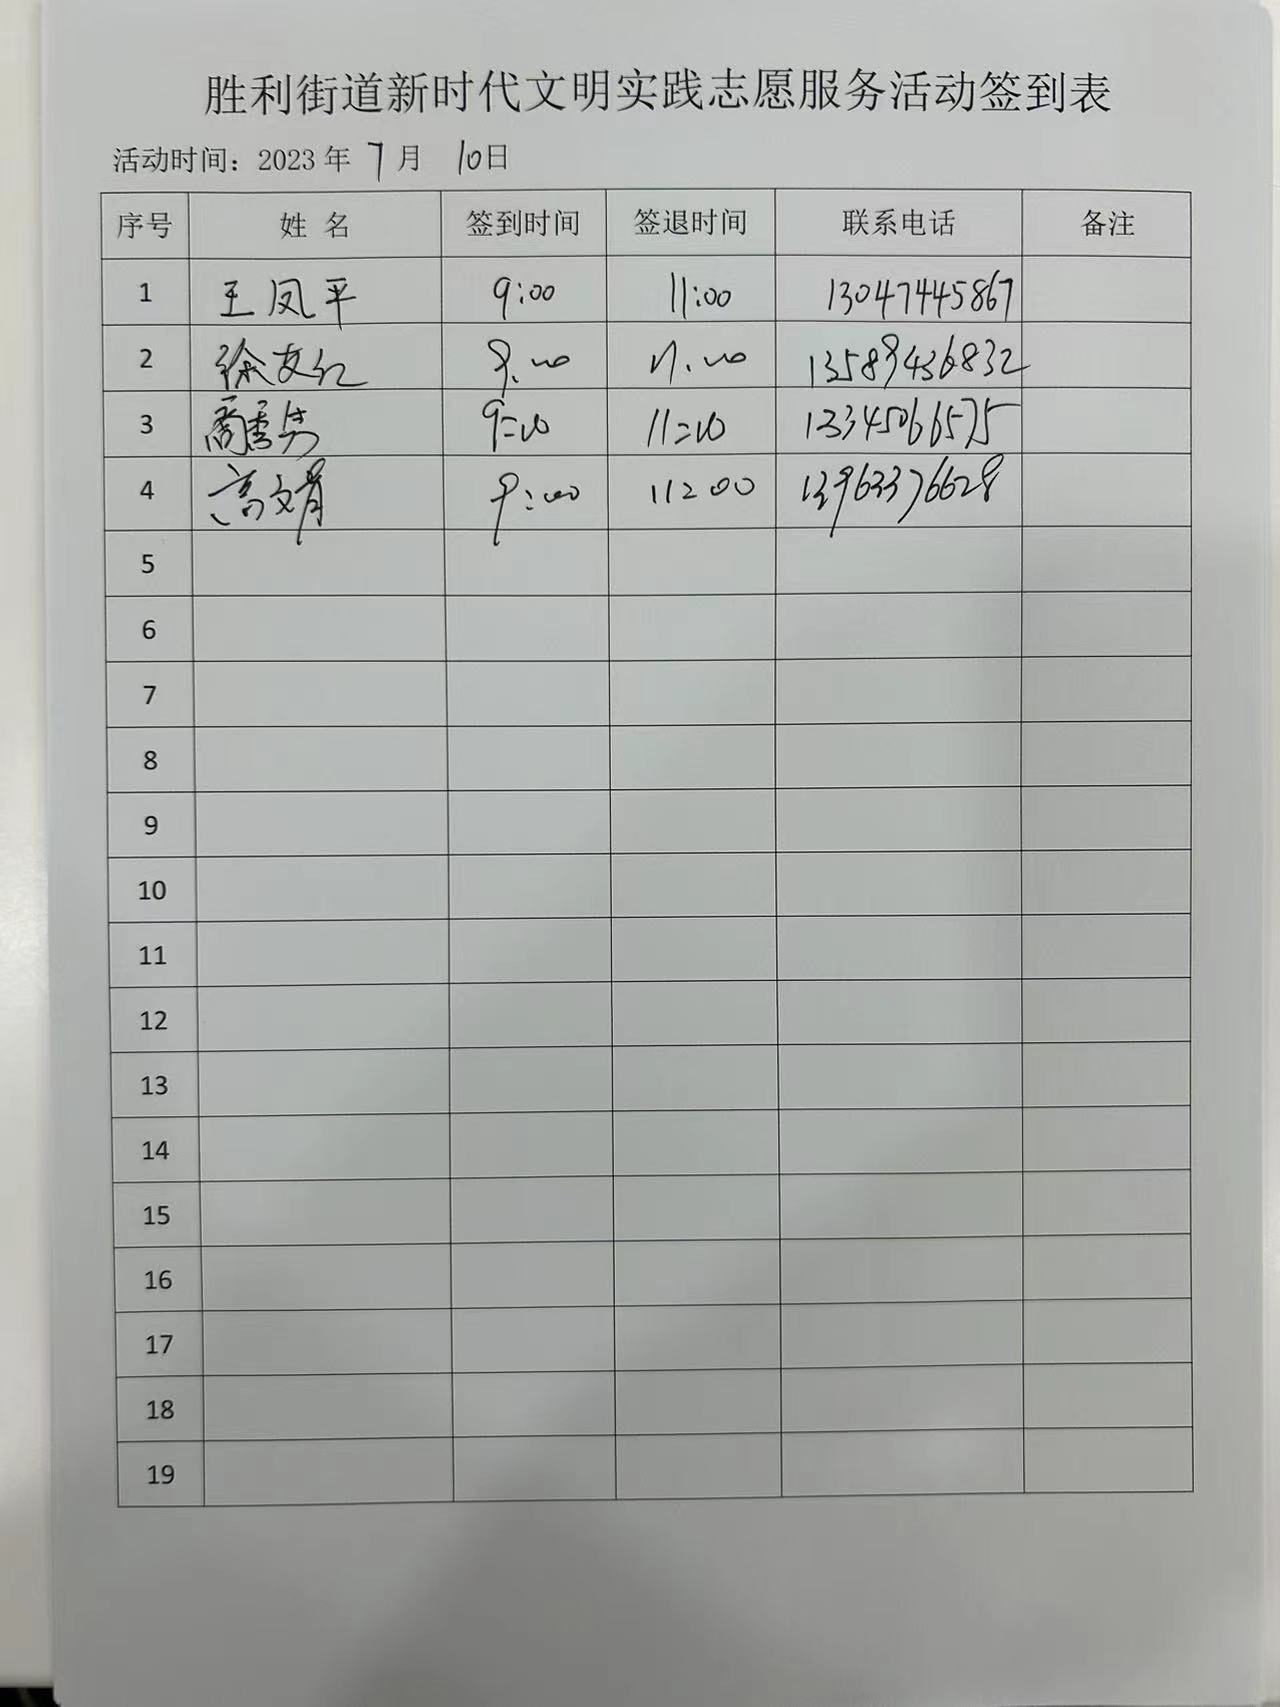 胜利街道新时代文明实践志愿服务活动签到表
活动时间：2023 年 7 月 10日
序号 姓 名 签到时间 签退时间 联系电话 备注
1 王凤平 9:00 11:00 13047445867
2 徐友红 9:00 11:00 13589436832
3 9:00 11:00 13345066575
4 高文 9:00 11:00 13963376628
5
6
7
8
9
10
11
12
13
14
15
16
17
18
19